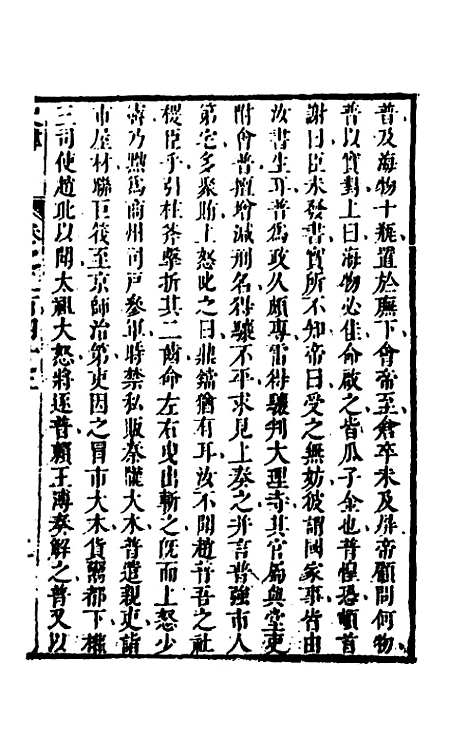 普及海物十瓶置於廡下會帝至倉卒未及屏帝顧問何物
普以實對上曰海物必佳命啟之皆瓜子金也普惶恐頓首
謝曰臣未發書實所不知帝曰受之無妨彼謂國家事皆由
汝書生耳普為政久頗專雷得驤判大理寺其官屬與堂吏
附會普擅增減刑名得驤不平求見上奏之并言普強市人
第宅多聚賄上怒叱之曰鼎鐺猶有耳汝不聞趙普吾之社
稷臣乎引柱斧擊折其二齒命左右曳出斬之旣而上怒少
霽乃黜爲商州司戶參軍時禁私販秦隴大木普遣親吏詣
市屋材聯巨筏至京師治第吏因之冒市大木貨鬻都下權
三司使趙玭以聞太祖大怒將逐普賴王溥奏解之普又以